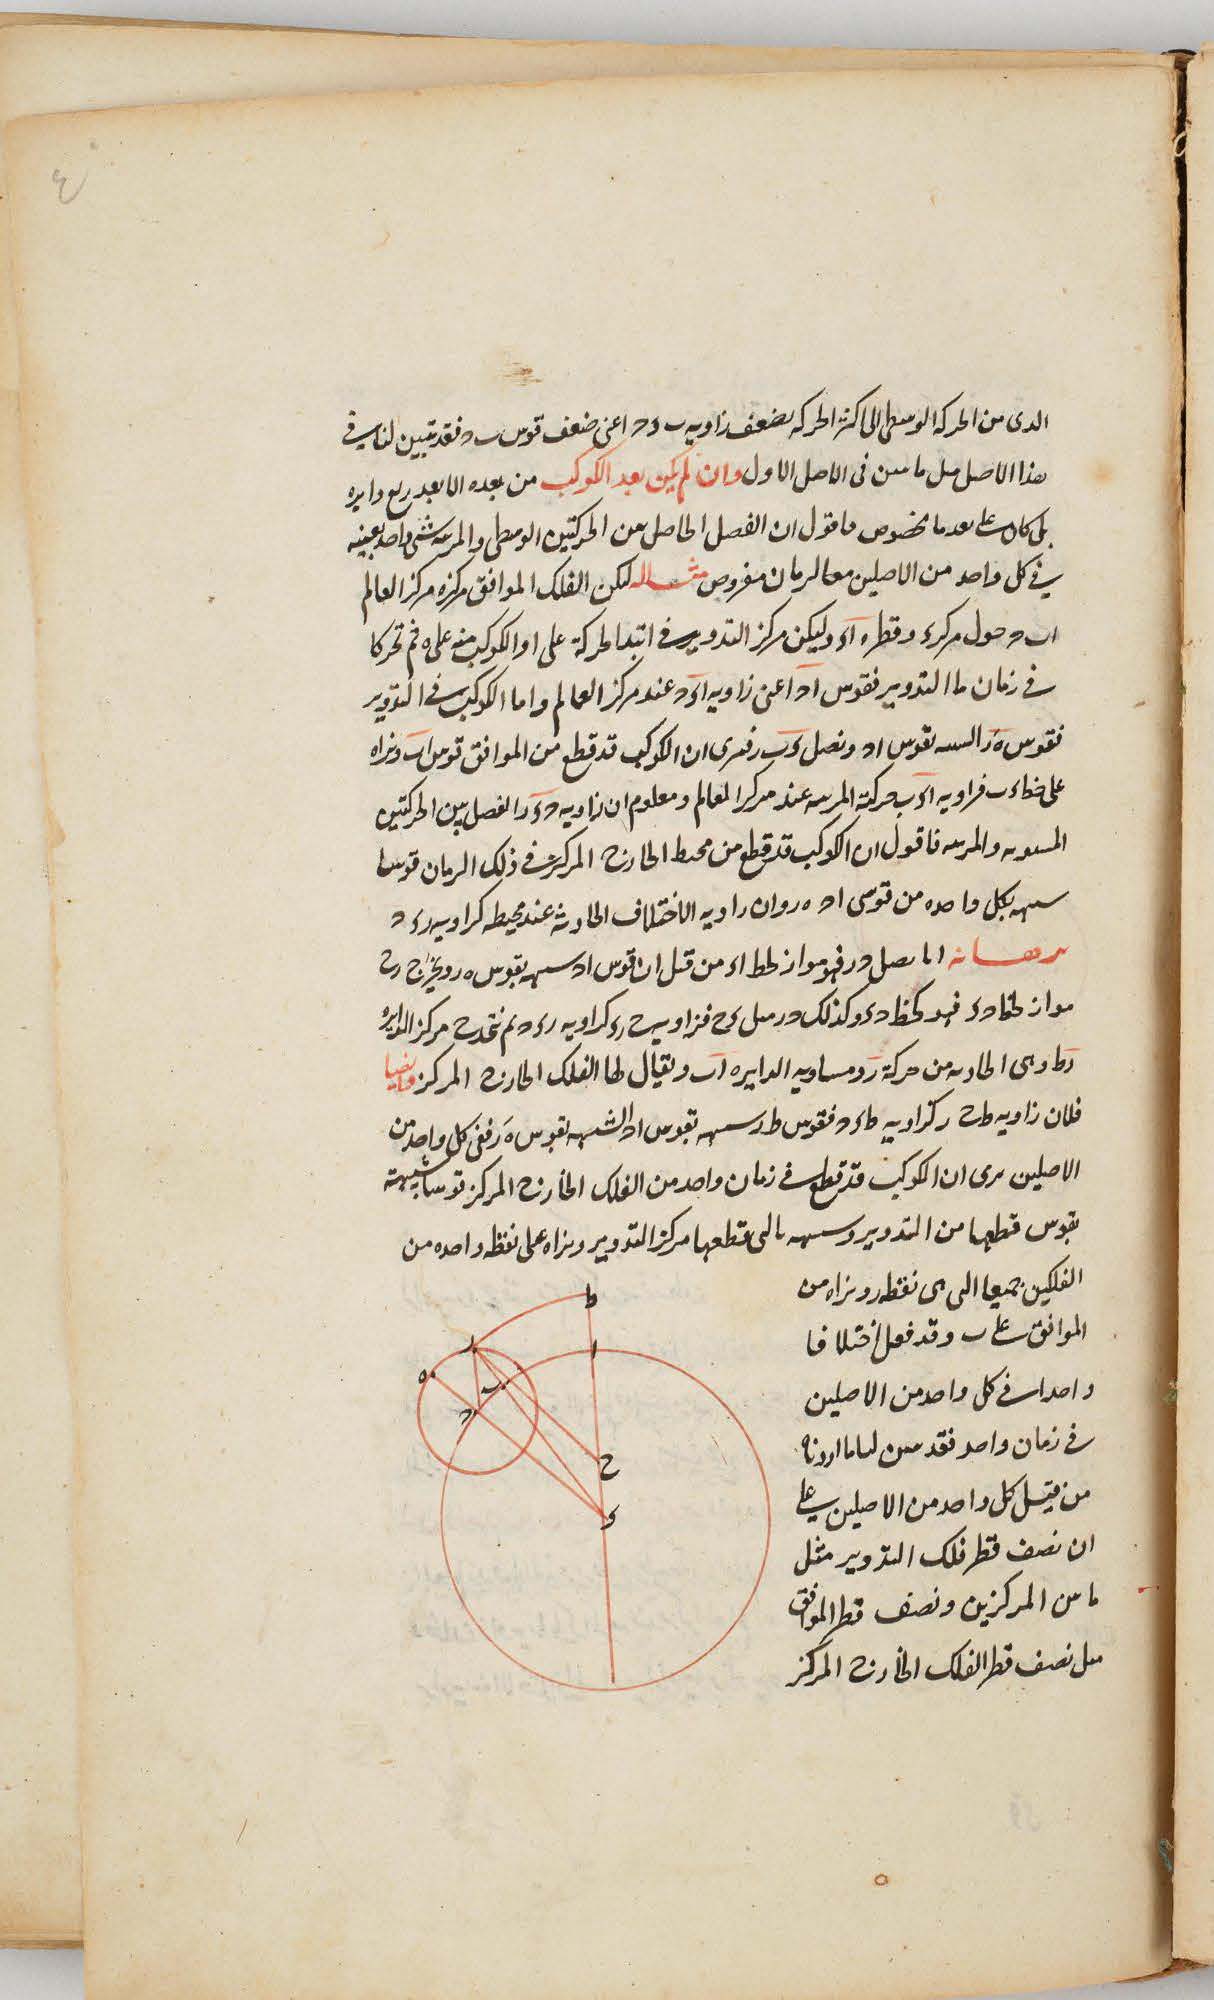 ٤
الدى من الحركه الوسطى الى اكثر الحركه بضعف زاويه ب د ح اعنى ضعف قوس ب ح فقد تبين لنا فى
هذا الاصل مثل ما بين فى الاصل الاول وان لم يكن بعد الكوكب من بعده الابعد ربع دايره
بل كان على بعد ما مخصوص فاقول ان الفضل الحاصل بين الحركتين الوسطى والمريه شى واحد بعينه
فى كل واحد من الاصلين معا لزمان مفروض مثاله ليكن الفلك الموافق مركزه مركز العالم
اب ح حول مركز ء وقطره اء وليكن مركز التدوير فى ابتدا الحركة على ا والكوكب منه على ه ثم تحركا
فى زمان ما التدوير بقوس ا ح اعنى زاويه اء ح عند مركز العالم واما الكوكب فى التدوير
فقوس ه ر الشبيه بقوس ا ح ونصل ء ب ر فيرى ان الكوكب قد قطع من الموافق قوس اب ونراه
على خط ء ب فزاويه اء ب حركة المريه عند مركز العالم ومعلوم ان زاويه ح ء ر الفصل بين الحركتين
المستويه والمريه فاقول ان الكوكب قد قطع من محيط الخارج المركز فى ذلك الزمان قوسا
شبيهه بكل واحده من قوسى ا ح ه ر وان زاويه الاختلاف الحادثه عند محيطه كزاويه ر ء ح
برهانه انا نصل ح ر فهو مواز لخط اء من قبل ان قوس ا ح شبيهه بقوس ه ر ويخراج ر ح
مواز لخط ح ء فهو كخط ح ء وكذلك ح ر مثل ء ح فزاويه ح ر ء كزاويه ر ء ح ثم نتخذ ح مركز الدايره
ر ط وهى الحادثه من حركة ر ومساويه الدايره اب ويقال لها الفلك الخارج المركز وايضا
فلان زاويه ط ح ر كزاويه ط ء ح فقوس ط ر شبيهه بقوس ا ح الشبيه بقوس ه ر ففى كل واحد من
الاصلين يرى ان الكوكب قد قطع فى زمان واحد من الفلك الخارج المركز قوسا شبيهة
بقوس قطعها من التدوير وشبيهه بالتى قطعها مركز التدوير ونراه على نقطه واحده من
الفلكين جميعا التى هى نقطه ر ونراه من
الموافق على ب وقد فعل اختلافا
واحدا فى كل واحد من الاصلين
فى زمان واحد فقد تبين لنا ما اردناه
من قبل كل واحد من الاصلين على
ان نصف قطر فلك التدوير مثل
ما بين المركزين ونصف قطر الموافق
مثل نصف قطر الفلك الخارج المركز
ط
ا
ر
ه
ب
ح
ح
ء